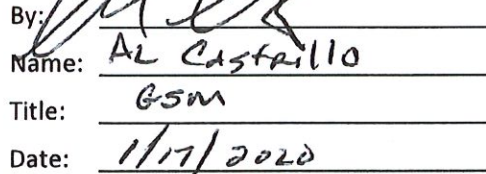 By:
Name: AL Castrillo
Title: GSM
Date: 1/17/2020